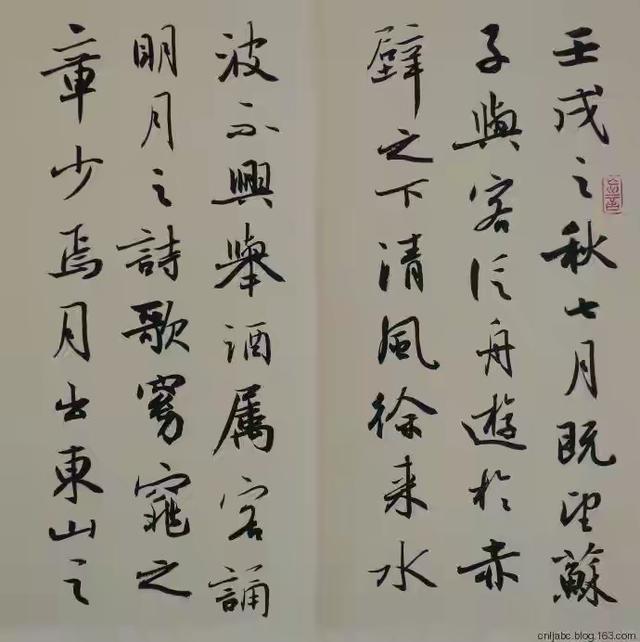 壬戌之秋七月既望蘇
子與客泛舟遊於赤
壁之下清風徐来水
波不興舉酒属客誦
明月之詩歌窈窕之
章少焉月出東山之
cnljabc.blog.163.com